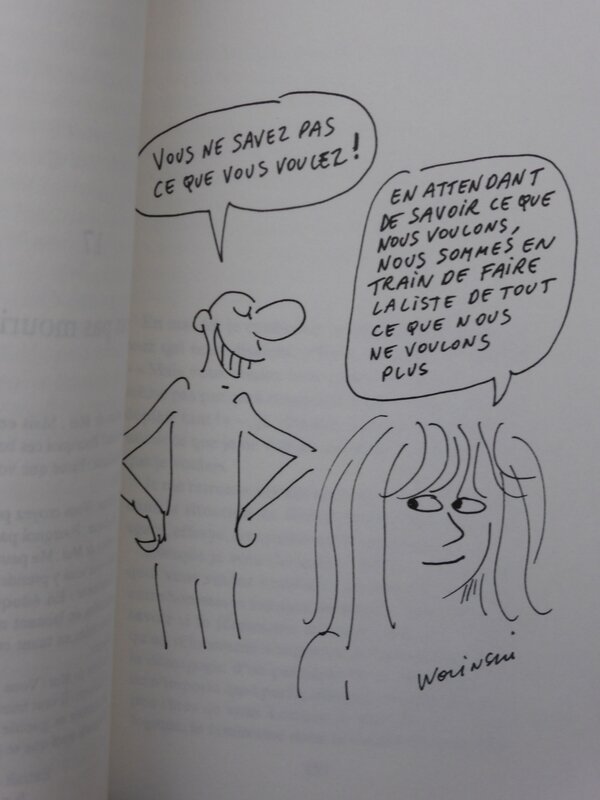 VOUS NE SAVEZ PAS
CE QUE VOUS VOULEZ!
EN ATTENDANT
DE SAVOIR CE QUE
NOUS VOULONS,
NOUS SOMMES EN
TRAIN DE FAIRE
LA LISTE DE TOUT
CE QUE NOUS
NE VOULONS
PLUS
WOLINSKI